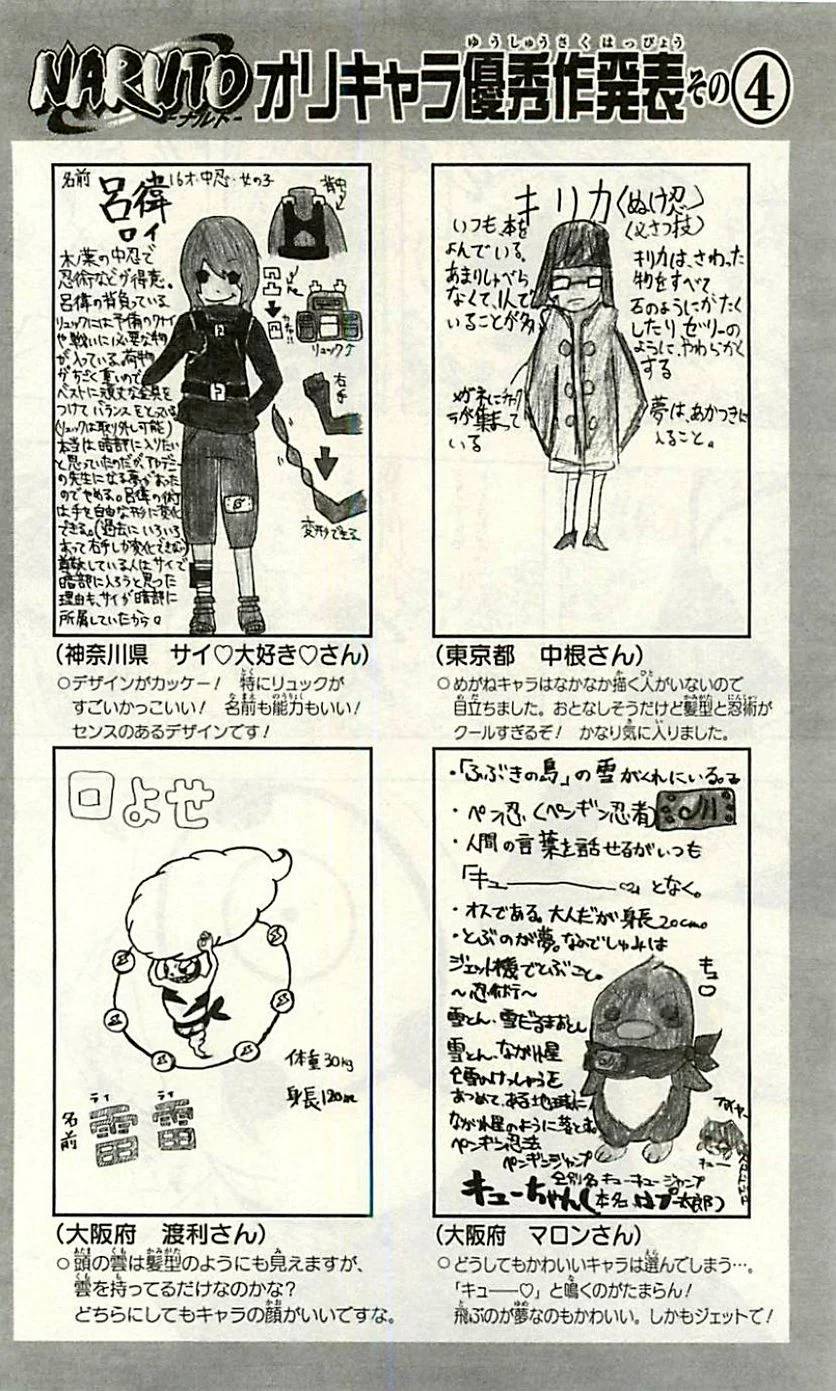 NARUTO
ーナルトー
オリキャラ優秀作発表その④
ゆうしゅうさくはっぴょう
名前
16才・中忍・女の子
呂偉
ロイ
背中
木ノ葉の中忍で
忍術などが得意。
呂偉の背負っている
リュックには予備のクナイ
や戦いに必要な物
が入っている。荷物
がすごく重いので
ベストに頑丈な金具を
つけてバランスをとっている
(リュックは取り外し可能)
本当は暗部に入りたい
と思っていたのだが、アカデミー
の先生になる夢があった
のでやめる。呂偉の術
は手を自由な形に変化
できる。(過去にいろいろ
あって右手しか変化できない)
尊敬している人はサイで
暗部に入ろうと思った
理由も、サイが暗部に
所属していたから。
リュック↑
右手
変形できる
(神奈川県 サイ♡大好き♡さん)
○デザインがカッケー! 特にリュックが
すごいかっこいい! 名前も能力もいい!
センスのあるデザインです!
キリカ(ぬけ忍)
いつも、本を
よんでいる。
あまりしゃべら
なくて、1人で
いることが多い
メガネにチャク
ラが集まって
いる
(ひさつ技)
キリカは、さわった
物をすべて
石のようにかたく
したり、ゼリーの
ように、やわらかく
する
夢は、あかつきに
入ること。
(東京都 中根さん)
○めがねキャラはなかなか描く人がいないので
目立ちました。おとなしそうだけど髪型と忍術が
クールすぎるぞ! かなり気に入りました。
口よせ
体重30kg
身長120cm
名前
雷雷
ライ ライ
(大阪府 渡利さん)
○頭の雲は髪型のようにも見えますが、
雲を持ってるだけなのかな?
どちらにしてもキャラの顔がいいですな。
・「ふぶきの島」の雪がくれにいる。
・ペン忍(ペンギン忍者)
・人間の言葉を話せるがいつも
「キュー――♡」となく。
・オスである。大人だが身長20cm。
・とぶのが夢。なみでしゅみは
ジェット機でとぶこと。
〜忍術〜
雪とん・雪だるまおとし
雪とん・ながれ星
雪のけっしょうを
あつめて、ある地球に
ながれ星のように落とす。
ペンギン忍法
ペンギンジャンプ
別名キューキュージャンプ
キュー♡
キューちゃん(本名はプ太郎)
(大阪府 マロンさん)
○どうしてもかわいいキャラは選んでしまう…。
「キュー――♡」と鳴くのがたまらん!
飛ぶのが夢なのもかわいい。しかもジェットで!